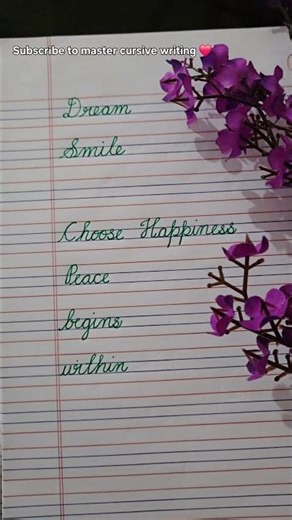 Subscribe to master cursive writing ❤️
Dream
Smile
Choose Happiness
Peace
begins
within